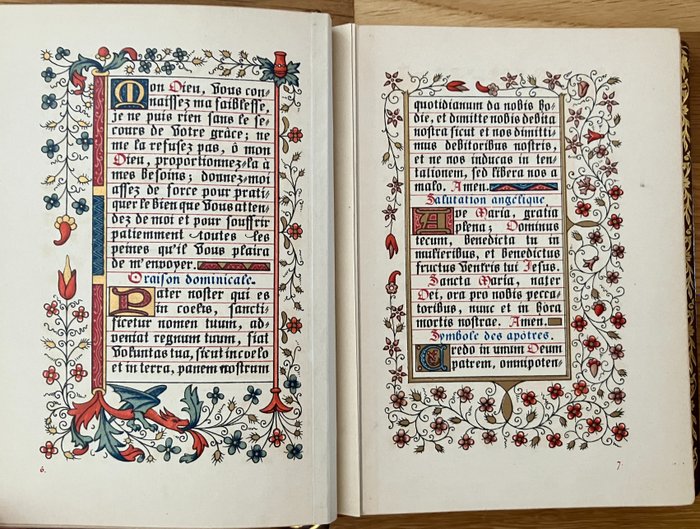 Mon Dieu, Vous con-
naissez ma faiblesse,
je ne puis rien sans le se-
cours de Votre grâce; ne
me la refusez pas, ô mon
Dieu, proportionnez-la à
mes besoins; donnez-moi
assez de force pour prati-
quer le bien que Vous atten-
dez de moi et pour souffrir
patiemment toutes les
peines qu'il Vous plaira
de m'envoyer.
Oraison dominicale.
Pater noster qui es
in coelis, sancti-
ficetur nomen tuum, ad-
veniat regnum tuum, fiat
Voluntas tua, sicut in coelo
et in terra, panem nostrum
6.
quotidianum da nobis ho-
die, et dimitte nobis debita
nostra sicut et nos dimitti-
mus debitoribus nostris
et ne nos inducas in ten-
tationem, sed libera nos a
malo. Amen.
Salutation angélique
Ave Maria, gratia
plena; Dominus
tecum, benedicta tu in
mulieribus, et benedictus
fructus Ventris tui Jesus.
Sancta Maria, mater
Dei, ora pro nobis pecca-
toribus, nunc et in hora
mortis nostrae. Amen.
Symbole des apôtres.
Credo in unum Deum
patrem, omnipoten-
7.